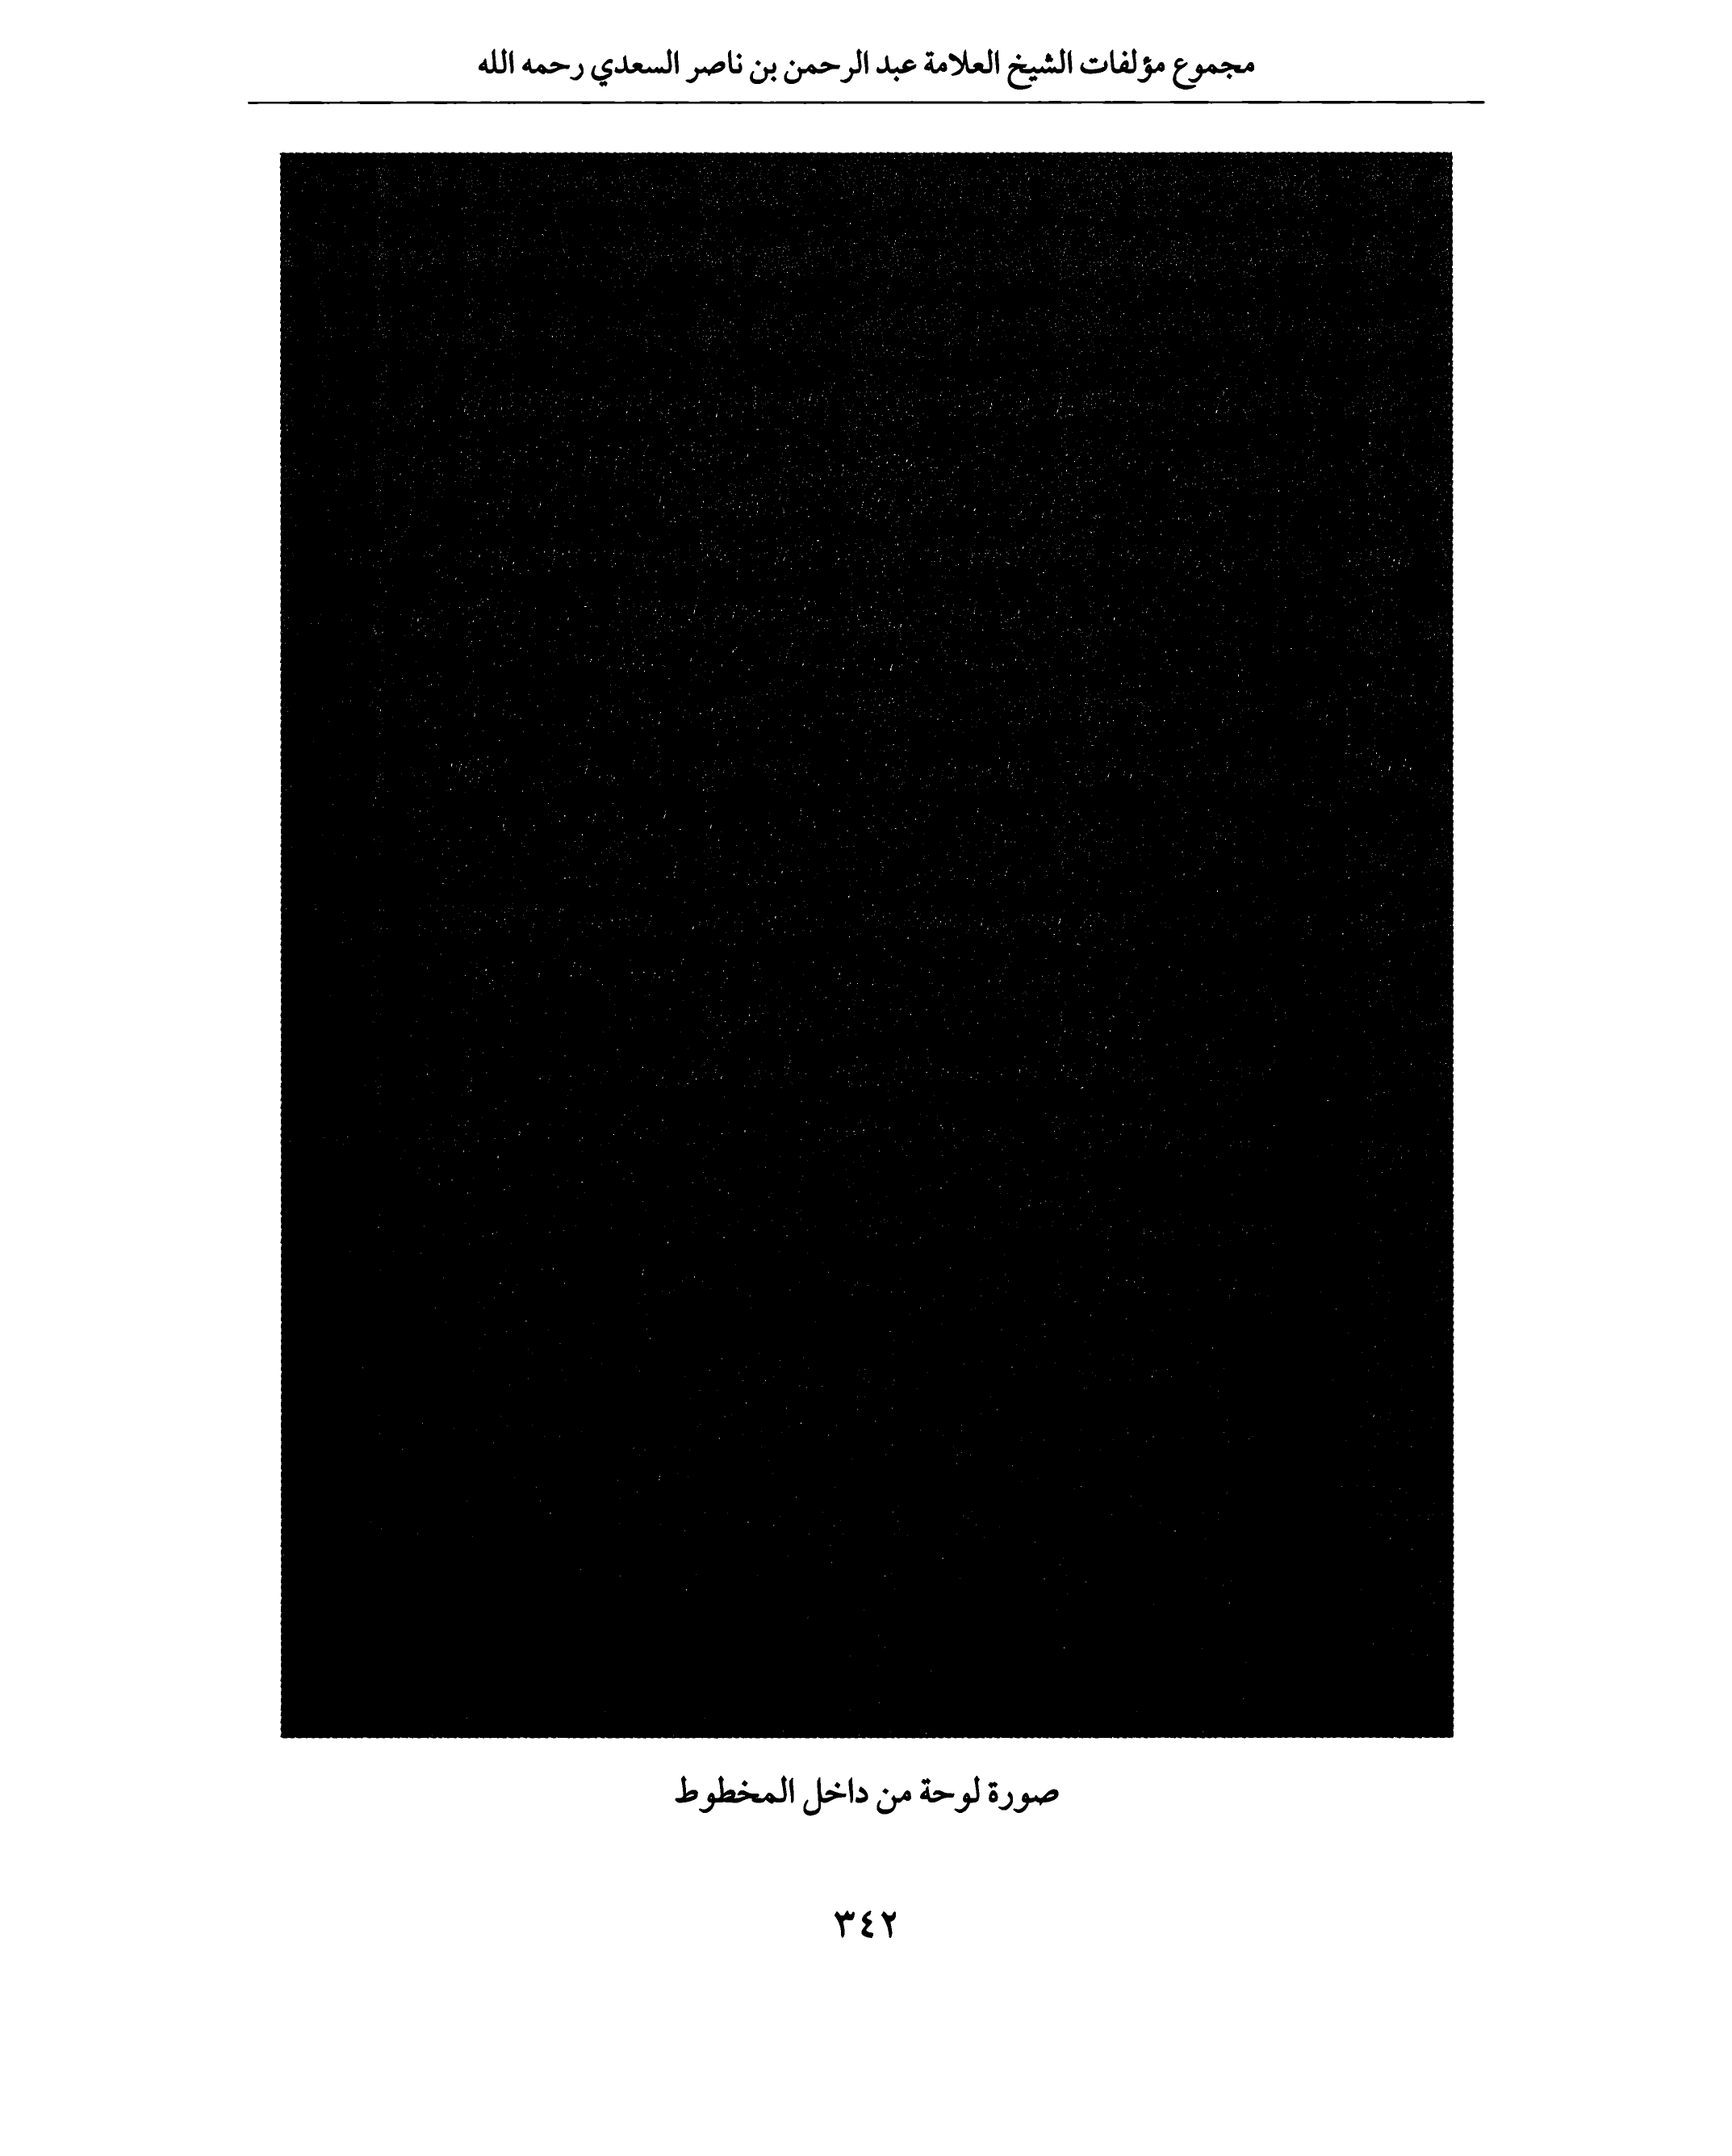 مجموع مؤلفات الشيخ العلامة عبد الرحمن بن ناصر السعدي رحمه الله
صورة لوحة من داخل المخطوط
٣٤٢